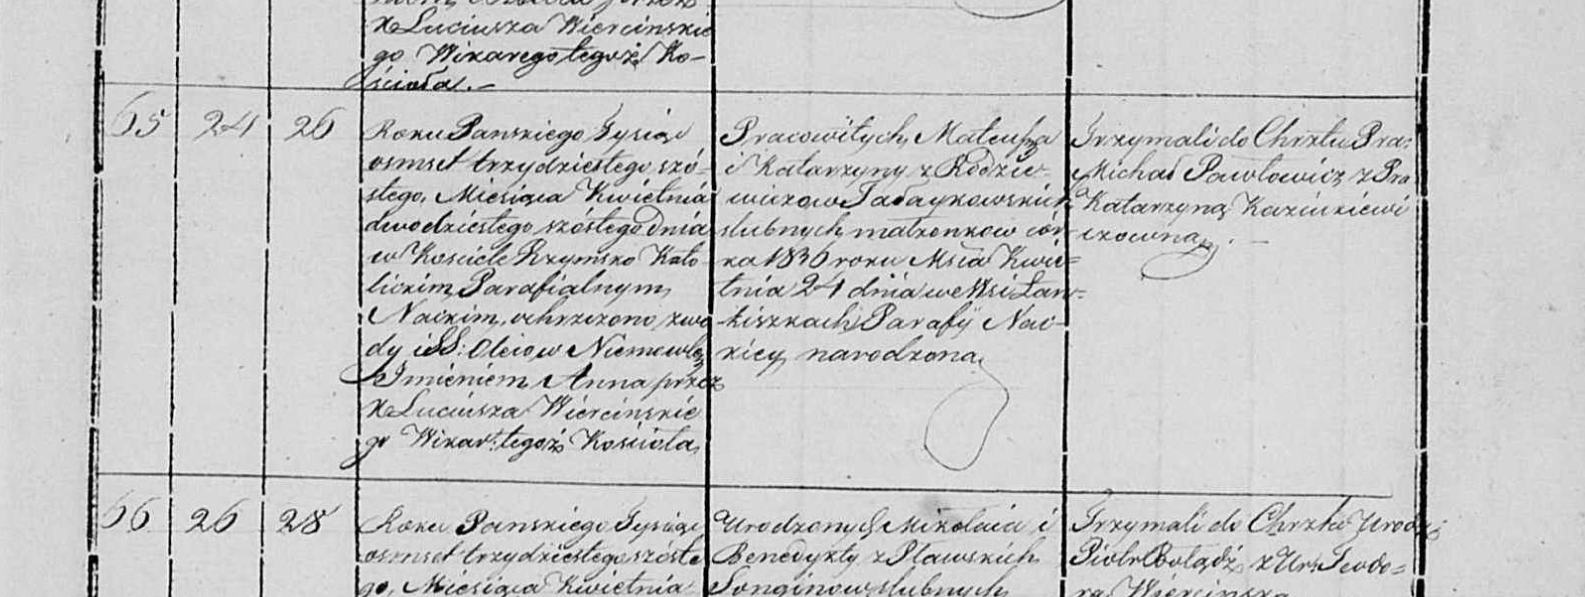 X Luciusza Wiercinskie
go Wikarego tegoż Ko-
ścioła.-
65 24 26
Roku Panskiego Tysiąc
osmset trzydziestego szó-
stego, Miesiąca Kwietnia
dwodziestego szóstego dnia
w Kosciele Rzymsko Kato-
lickim Parafialnym
Nackim, ochrzczono z wo
dy i SS: Oleiow Niemowlę
Imieniem Anna przez
X Luciusza Wiercinskie
go Wikar: tegoż Kościoła
Pracowitych Mateusza
i Katarzyny z Rodzie-
wiczow
slubnych małzonkow cór-
ka 1836 roku Msca Kwie=
tnia 24 dnia we Wsi
Parafij Nac-
kiey narodzona
Trzymali do Chrztu Pra:
Michał Pawłowicz z Pra
Katarzyną Kaziukiewi
czowną.
66 26 28
Roku Panskiego Tysiąc
osmset trzydziestego szoste
go, Miesiąca Kwietnia
Urodzonych Mikołaia i
Benedykty z Pławskich
Songinow slubnych
Trzymali do Chrztu Urodz:
Piotr z Ur: Teodo=
rą Wiercinską